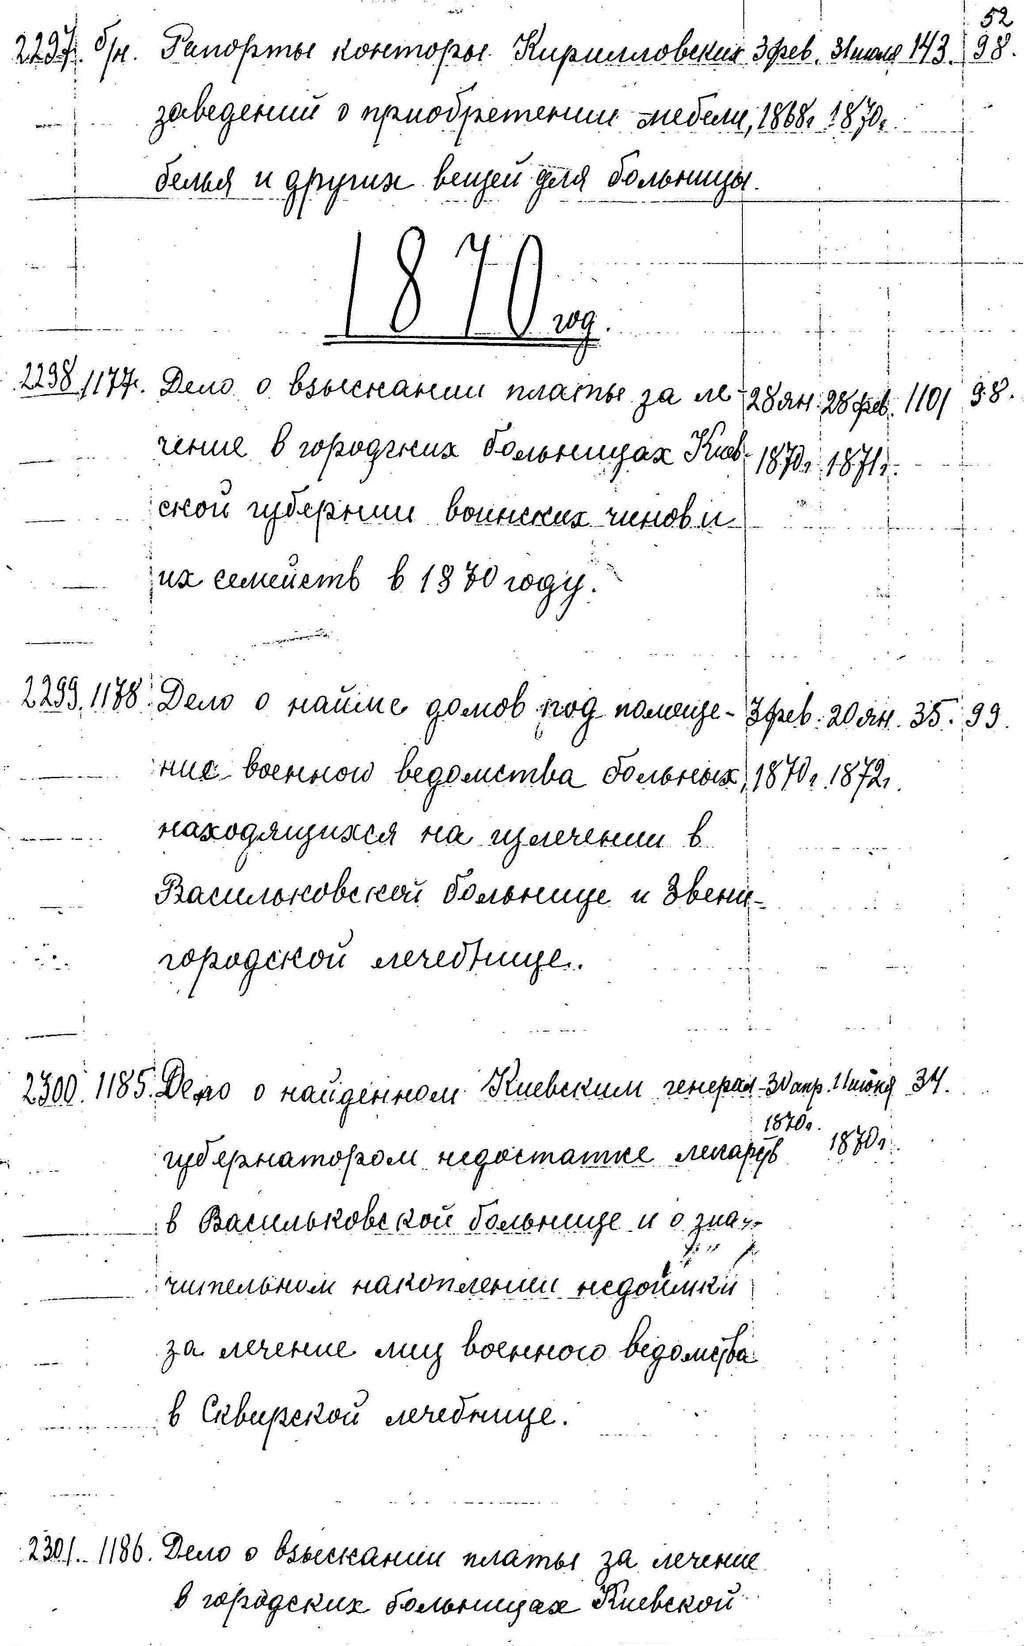 52
2297. б/н. Рапорты конторы Кирилловских 3 фев. 31 июля 143. 98.
заведений о приобретении мебели, 1868г. 1870г.
белья и других вещей для больницы.
1870 год.
2298 1177. Дело о взыскании платы за ле- 28 ян. 28 фев. 1101 98.
чение в городских больницах Киев- 1870г. 1871г.
ской губернии воинских чинов и
их семейств в 1870 году.
2299. 1178. Дело о найме домов под помеще- 3 фев. 20 ян. 35. 99.
ние военного ведомства больных, 1870г. 1872г.
находящихся на излечении в
Васильковской больнице и Звени-
городской лечебнице.
2300. 1185. Дело о найденном Киевским генерал- 30 апр. 11 июня 34.
1870г.
губернатором недостатке лекарств 1870г.
в Васильковской больнице и о зна-
чительном накоплении недоимки
за лечение лиц военного ведомства
в Сквирской лечебнице.
2301. 1186. Дело о взыскании платы за лечение
в городских больницах Киевской